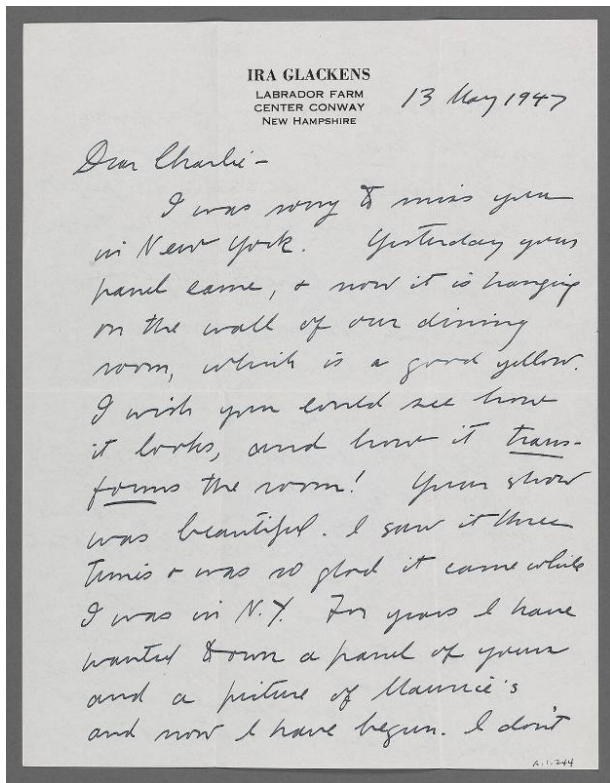 IRA GLACKENS
LABRADOR FARM
CENTER CONWAY
NEW HAMPSHIRE
13 May 1947
Dear Charlie -
I was sorry to miss you
in New York. Yesterday your
panel came, & now it is hanging
on the wall of our dining
room, which is a good yellow.
I wish you could see how
it looks, and how it trans-
forms the room! Your show
was beautiful. I saw it three
times & was so glad it came while
I was in N.Y. For years I have
wanted to own a panel of yours
and a picture of Maurice's
and now I have begun. I don't
A.1.244